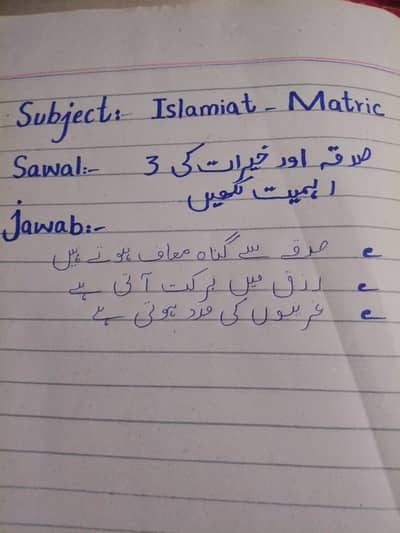 Subject:- Islamiat - Matric
Sawal:- صدقہ اور خیرات کی 3
اہمیت لکھیں
Jawab:-
صدقہ سے گناہ معاف ہوتے ہیں
رزق میں برکت آتی ہے
غریبوں کی مدد ہوتی ہے